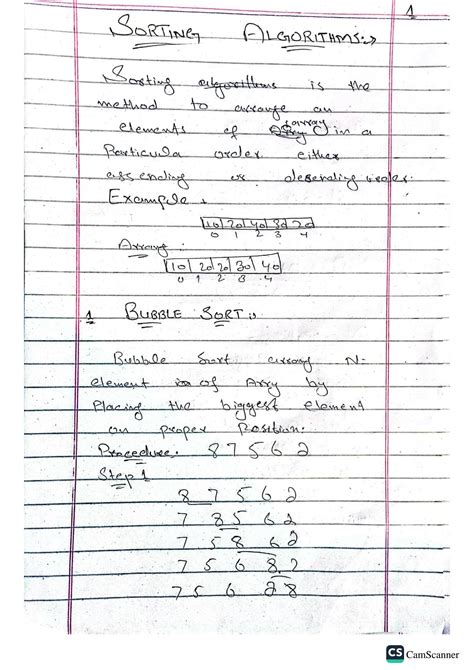 1
SORTING ALGORITHMS:->
Sorting algorithms is the
method to arrange an
elements of Array (array) in a
Particula order either
assending or desending order.
Example:
10 20 40 30 20
0 1 2 3 4
Array:
10 20 20 30 40
0 1 2 3 4
1 BUBBLE SORT:
Bubble Sort array N-
element is of Arry by
Placing the biggest element
on proper Position.
Procedure. 8 7 5 6 2
Step 1
8 7 5 6 2
7 8 5 6 2
7 5 8 6 2
7 5 6 8 2
7 5 6 2 8
CS CamScanner